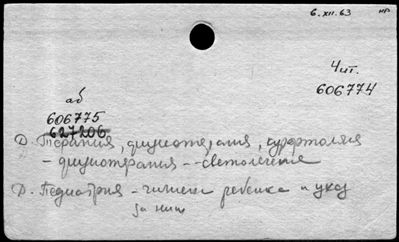 6.XII.63 нр
Чит.
606774
аб
606775
627206
Д. Терапия, физиотерапия, курортология
- физиотерапия -- светолечение
Д. Педиатрия - гигиена ребенка и уход
за ним